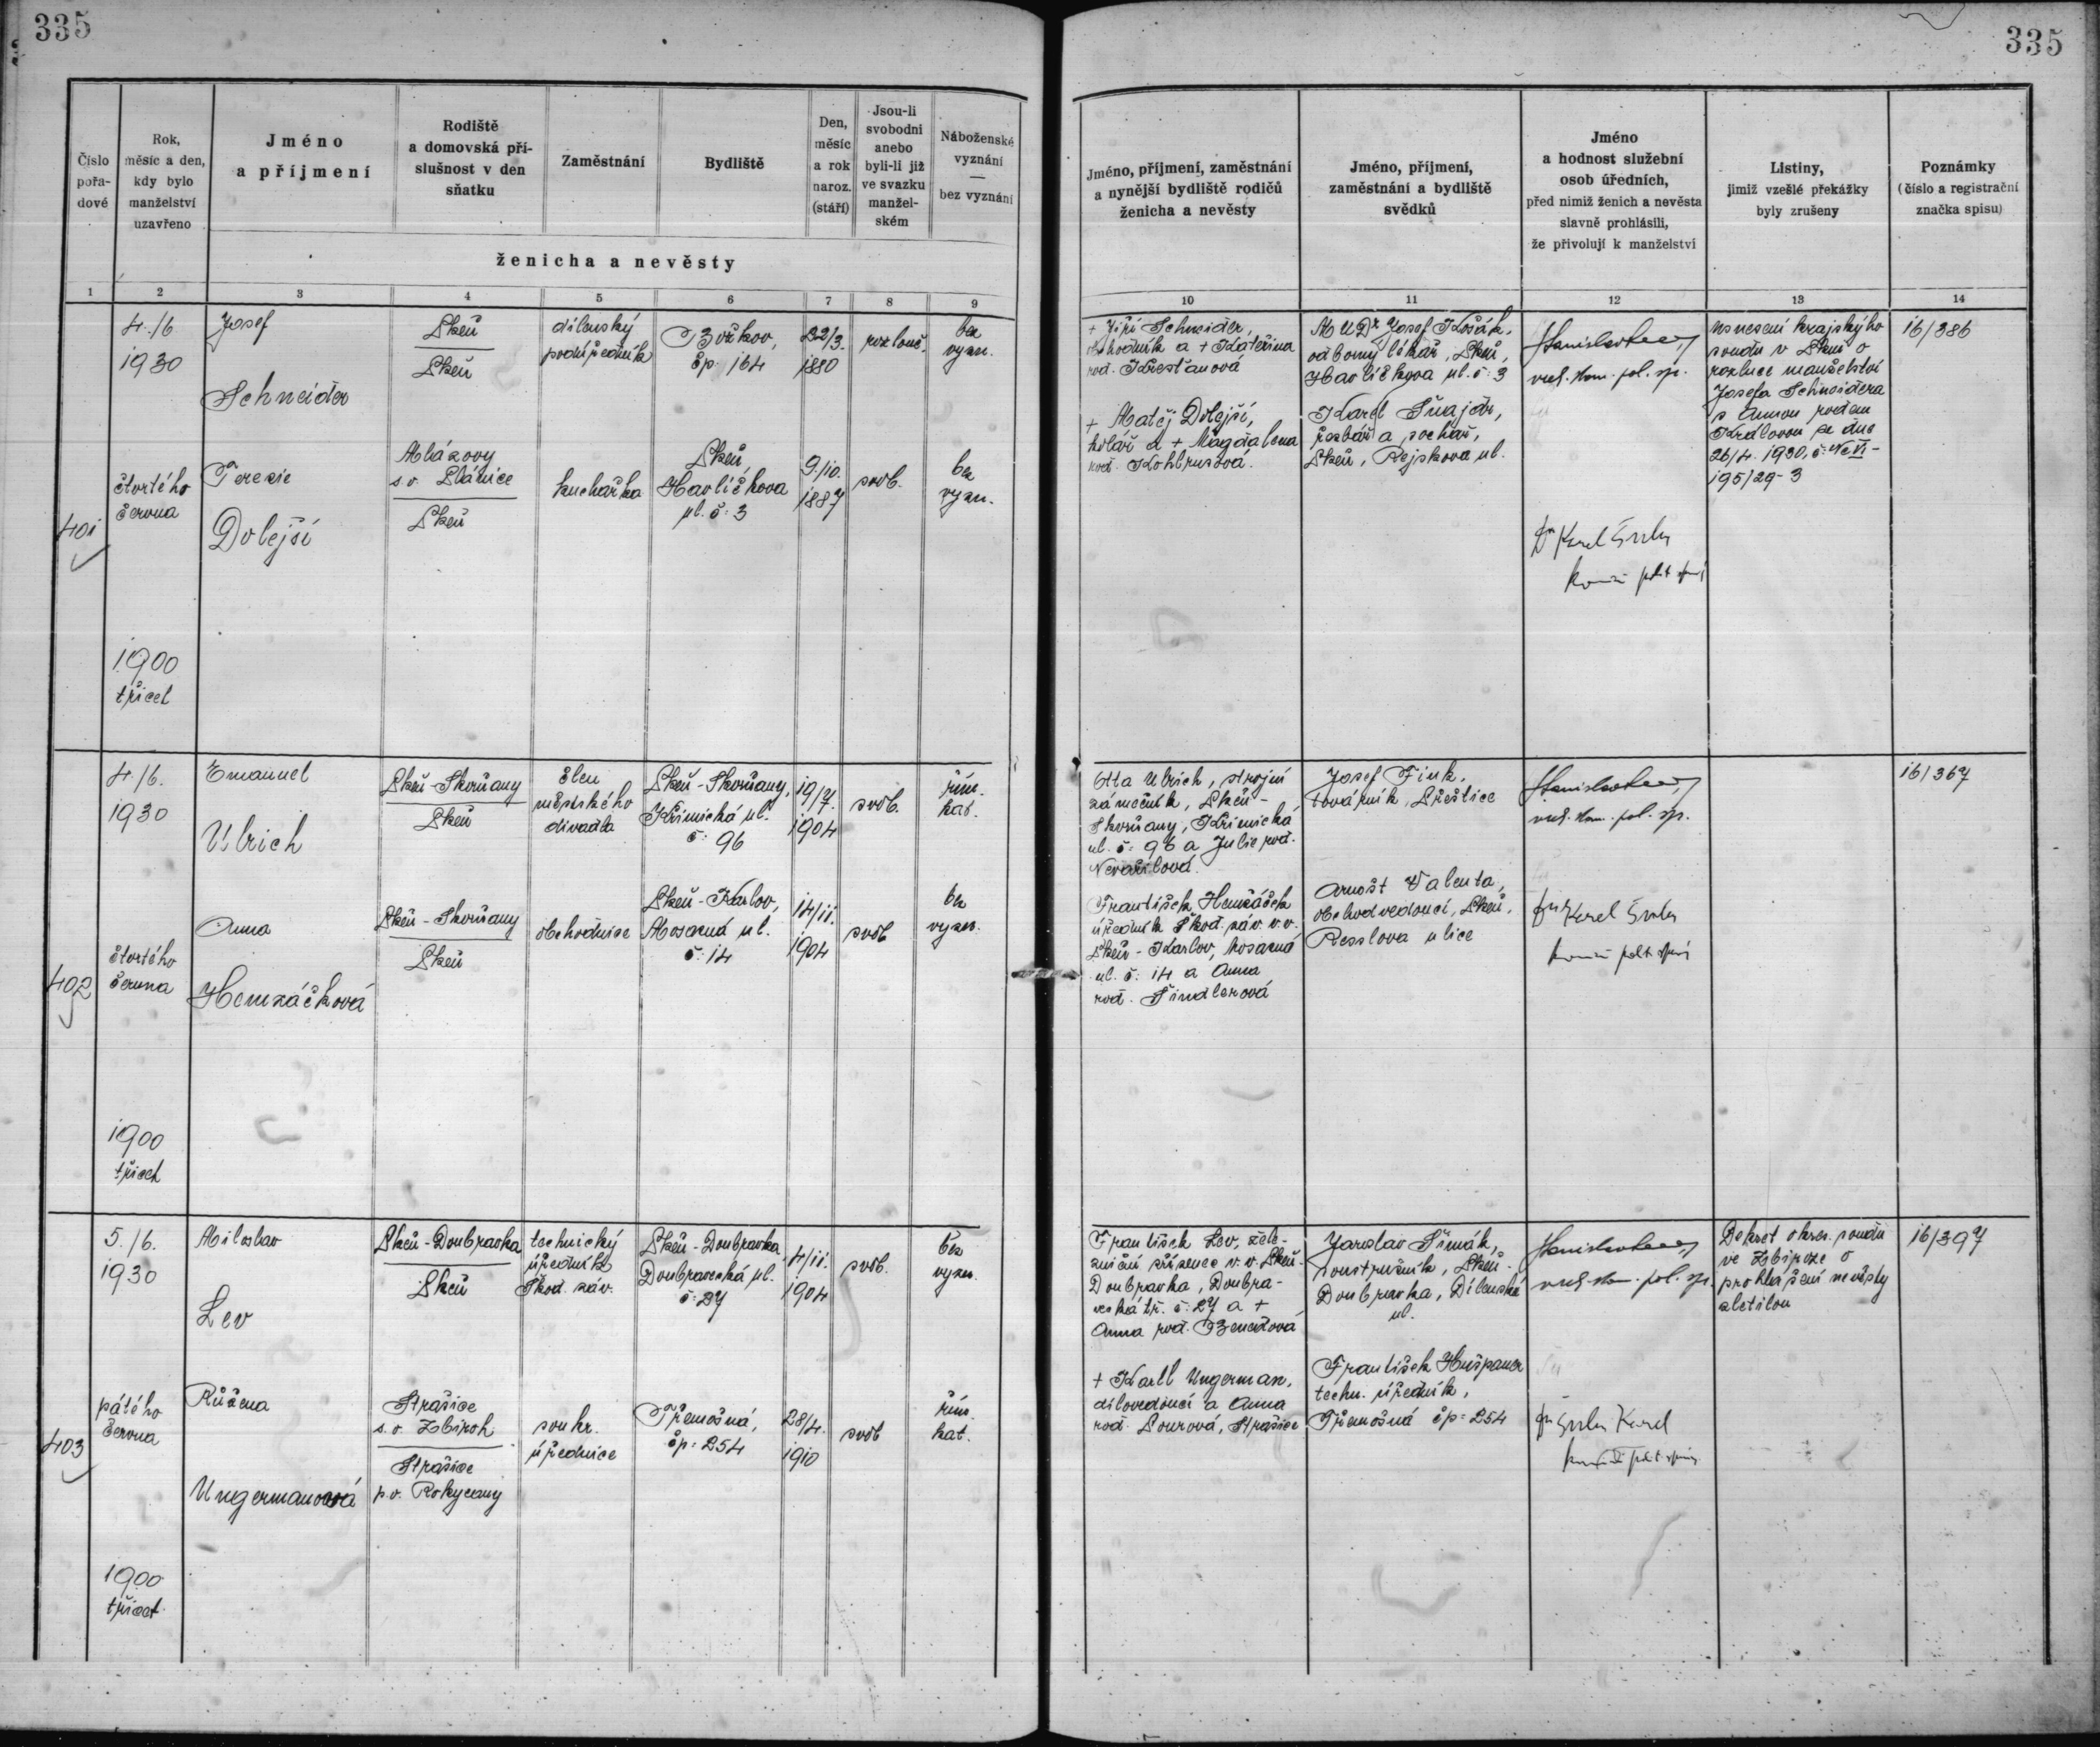 335
335
Číslo
pořa-
dové
Rok,
měsíc a den,
kdy bylo
manželství
uzavřeno
Jméno
a příjmení
Rodiště
a domovská pří-
slušnost v den
sňatku
Zaměstnání
Bydliště
Den,
měsíc
a rok
naroz.
(stáří)
Jsou-li
svobodni
anebo
byli-li již
ve svazku
manžel-
ském
Náboženské
vyznání
—
bez vyznání
ženicha a nevěsty
Jméno, příjmení, zaměstnání
a nynější bydliště rodičů
ženicha a nevěsty
Jméno, příjmení,
zaměstnání a bydliště
svědků
Jméno
a hodnost služební
osob úředních,
před nimiž ženich a nevěsta
slavně prohlásili,
že přivolují k manželství
Listiny,
jimiž vzešlé překážky
byly zrušeny
Poznámky
(číslo a registrační
značka spisu)
1 2 3 4 5 6 7 8 9 10 11 12 13 14
401
4./6
1930
čtvrtého
června
1900
třicet
Josef
Schneider
Plzeň
Plzeň
dílenský
podúředník
Božkov,
čp. 164
22/3.
1880
rozlouč.
bez
vyzn.
Terezie
Dolejší
Mlázovy
s.o. Plánice
Plzeň
kuchařka
Plzeň,
Havlíčkova
ul. č: 3
9./10.
1887
svob.
bez
vyzn.
+ Jiří Schneider,
obchodník a + Kateřina
rod. Křesťanová
+ Matěj Dolejší,
kolář a + Magdalena
rod. Kohlrusová.
MUDr Josef Košák,
odborný lékař, Plzeň,
Havlíčkova ul. č: 3
Karel Šnajdr,
řezbář a sochař,
Plzeň, Rejskova ul.
vrch. kom. pol. sp.
Dr Karel
Usnesení krajského
soudu v Plzni o
rozluce manželství
Josefa Schneidera
s Annou rodem
Královou ze dne
26/4. 1930, č: Nc VI-
195/29-3
16/386
402
4./6.
1930
čtvrtého
června
1900
třicet
Emanuel
Ulrich
Plzeň-Skvrňany
Plzeň
člen
městského
divadla
Plzeň-Skvrňany,
Křimická ul.
č: 96
19/7.
1904
svob.
řím.
kat.
Anna
Hemzáčková
Plzeň-Skvrňany
Plzeň
obchodnice
Plzeň-Karlov,
Mosazná ul.
č: 14
14/11.
1904
svob
bez
vyzn.
Otta Ulrich, strojní
zámečník, Plzeň-
Skvrňany, Křimická
ul. č: 96 a Julie rod.
Nevařilová.
František Hemzáček
úředník Škod. záv. v.v.
Plzeň-Karlov, Mosazná
ul. č: 14 a Anna
rod. Šindlerová
Josef Fink,
továrník, Přeštice
Arnošt Valenta,
obchodvedoucí, Plzeň,
Resslova ulice
vrch. kom. pol. sp.
Dr Karel
16/367
403
5./6.
1930
pátého
června
1900
třicet
Miloslav
Lev
Plzeň-Doubravka
Plzeň
technický
úředník
Škod. záv.
Plzeň-Doubravka
Doubravecká ul.
č: 27
4/11.
1904
svob.
bez
vyzn.
Růžena
Ungermanová
Strašice
s.o. Zbiroh
Strašice
p.o. Rokycany
soukr.
úřednice
Třemošná,
čp: 254
28/4.
1910
svob
řím.
kat.
František Lev, žele-
zniční zřízenec v.v. Plzeň-
Doubravka, Doubra-
vecká tř. č: 27 a +
Anna rod. Benediová
+ Karel Ungerman,
dílovedoucí a Anna
rod. Sourová, Strašice
Jaroslav Šimák,
soustružník, Plzeň-
Doubravka, Dílenská
ul.
František Hušpauer
techn. úředník,
Třemošná čp: 254
vrch. kom. pol. sp.
Dr Karel
Dekret okres. soudu
ve Zbiroze o
prohlášení nevěsty
zletilou
16/397